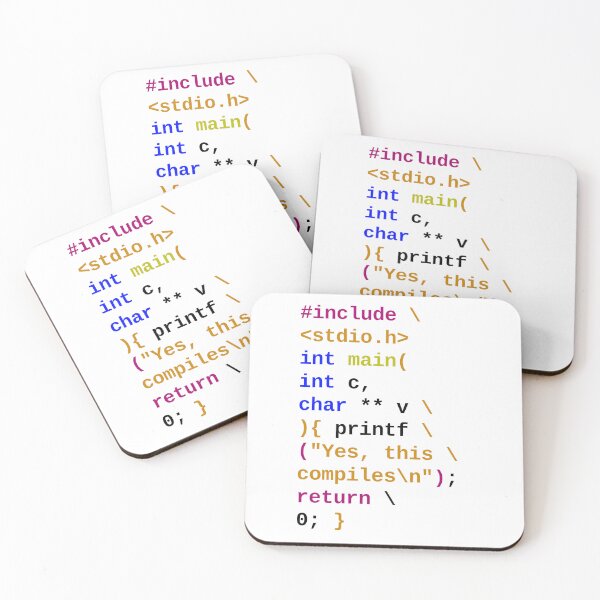 #include \
<stdio.h>
int main(
int c,
char ** v \
){ \
s \
);
#include \
<stdio.h>
int main(
int c,
char ** v \
){ printf \
("Yes, this \
compiles\n"
#include \
<stdio.h>
int main(
int c,
char ** v \
){ printf \
("Yes, this
compiles\n"
return \
0; }
#include \
<stdio.h>
int main(
int c,
char ** v \
){ printf \
("Yes, this \
compiles\n");
return \
0; }